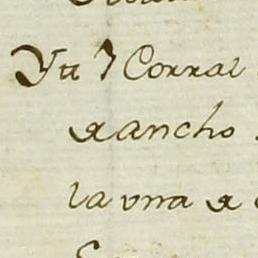 Ytt 7 Corral
rancho
la vna r